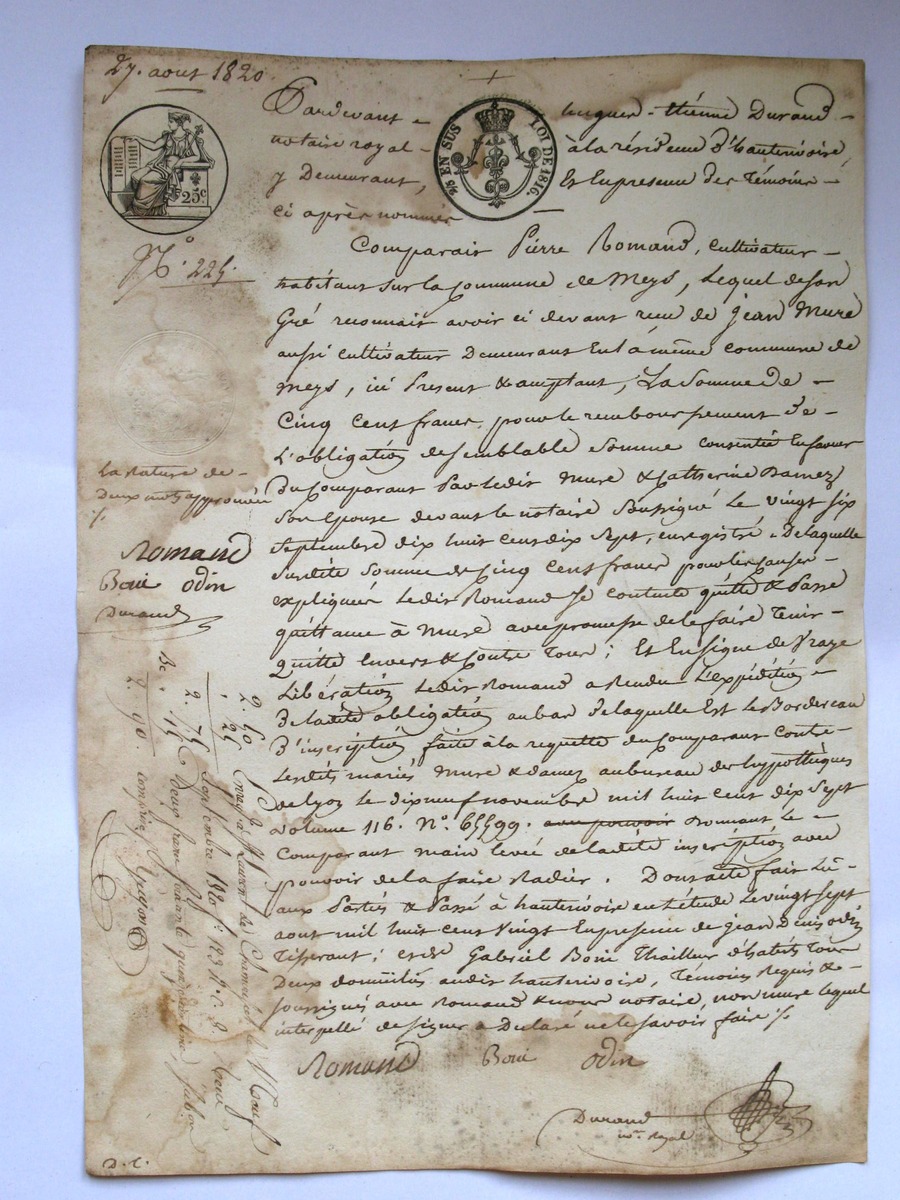 27. aout 1820
Pardevant
Étienne Durand
notaire royal
à la résidence d'hauterivoire,
y Demeurant,
Et En presence des Témoins
ci après nommés
98 EN SUS
LOI DE 1816.
25c
No. 225.
Comparait Pierre Romand, cultivateur
habitant sur la commune de Meys, Lequel de son
Gré reconnait avoir ci devant recu de jean Mure
aussi cultivateur Demeurant En la même commune de
Meys, ici Present & acceptant, La Somme de
Cinq Cent francs pour le remboursement de
L'obligation de semblable somme consentie En faveur
du Comparant Par Ledit Mure & Catherine
Son Epouse devant le notaire Soussigné Le vingt six
Septembre dix huit cent dix Sept, enregistré. De laquelle
Susdite Somme de Cinq Cent francs pour les causes
expliquées Ledit Romand Se contente quitte & Passe
quittance à Mure avec promesse de le faire Tenir
Quitte Envers & Contre Tous; Et En Signe de Vraye
Libération Ledit Romand a Rendu L'expédition
De ladite obligation au bas De laquelle Est Le Bordereau
D'inscription faite à la requette du Comparant Contre
Lesdits mariés Mure & au bureau des hypothèques
de Lyon Le dix neuf novembre mil huit cent dix Sept
volume 116. No. 65599. avec pouvoir Romand Le
Comparant main levée de ladite inscription avec
pouvoir de la faire Radier. Dont acte fait Lu
aux Parties & Passé à hauterivoire en Létude Le vingt sept
aout mil huit cent Vingt En presence de jean Denis odin
Tisserant; et de Gabriel Boni Thailleur d'habits Tous
Deux domiciliés audit hauterivoire, Témoins Requis &
Soussignés avec Romand & nous notaire, non Mure lequel
interpellé de signer a Déclaré ne le savoir faire
Romand Boni odin
Durand
nre. Royal
La Rature de
Deux mots approuvée
Romand
Boni odin
Durand
2. 50
. 25
2. 75
2. 90.
Enregé à St Laurent de Chamousset le Neuf
Septembre 1820
Reçu
Deux francs
D. C.